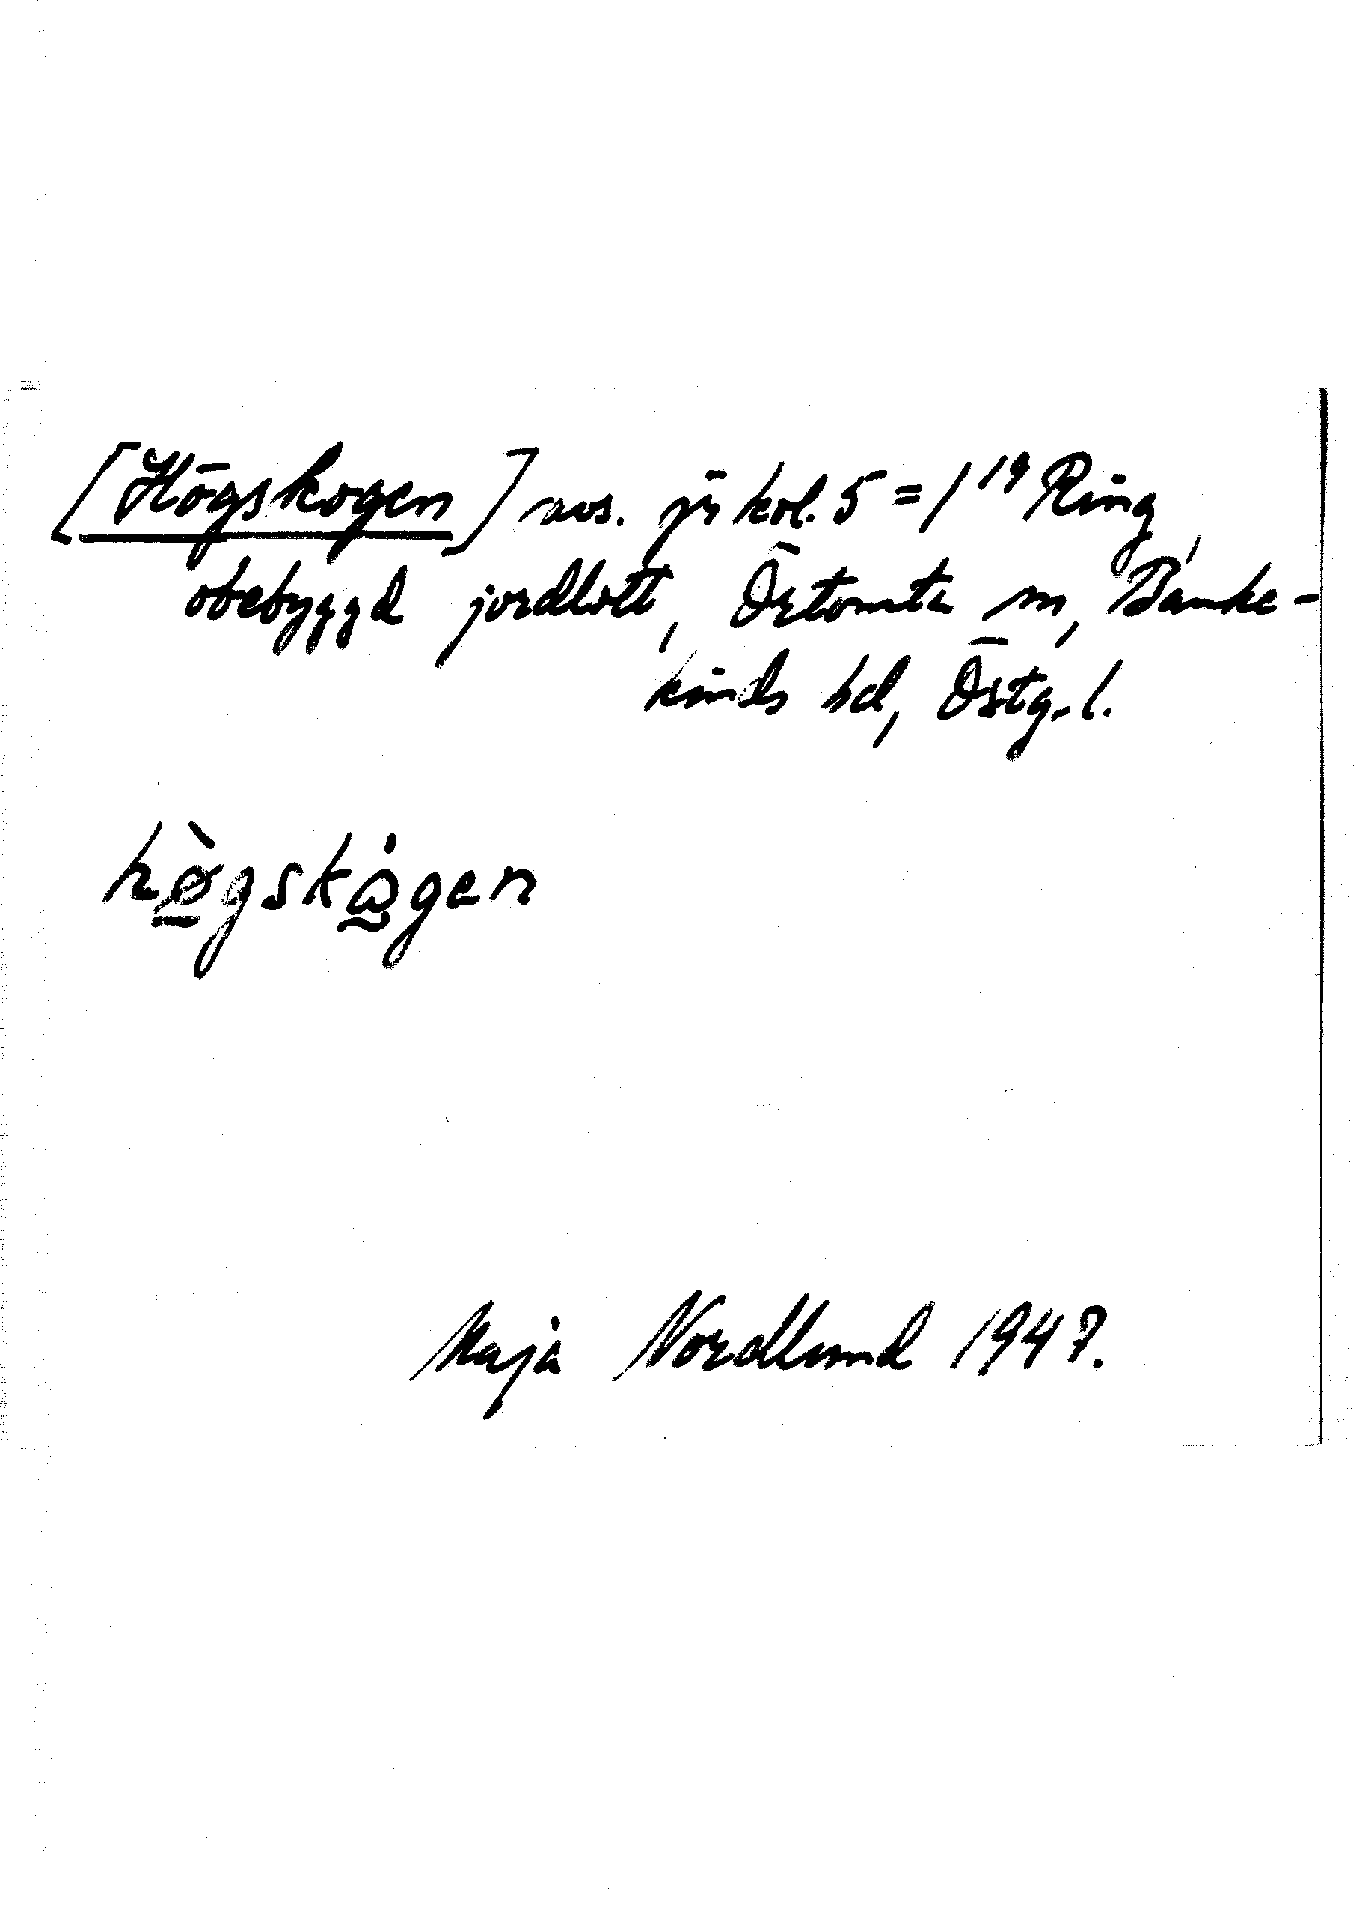 [Högskogen] avs. jr kol. 5 = 1¹⁹ Ring
obebyggd jordlott, Örtomta sn, Banke-
kinds hd, Östg. l.
hø̀gskågen
Maja Nordlund 1947.